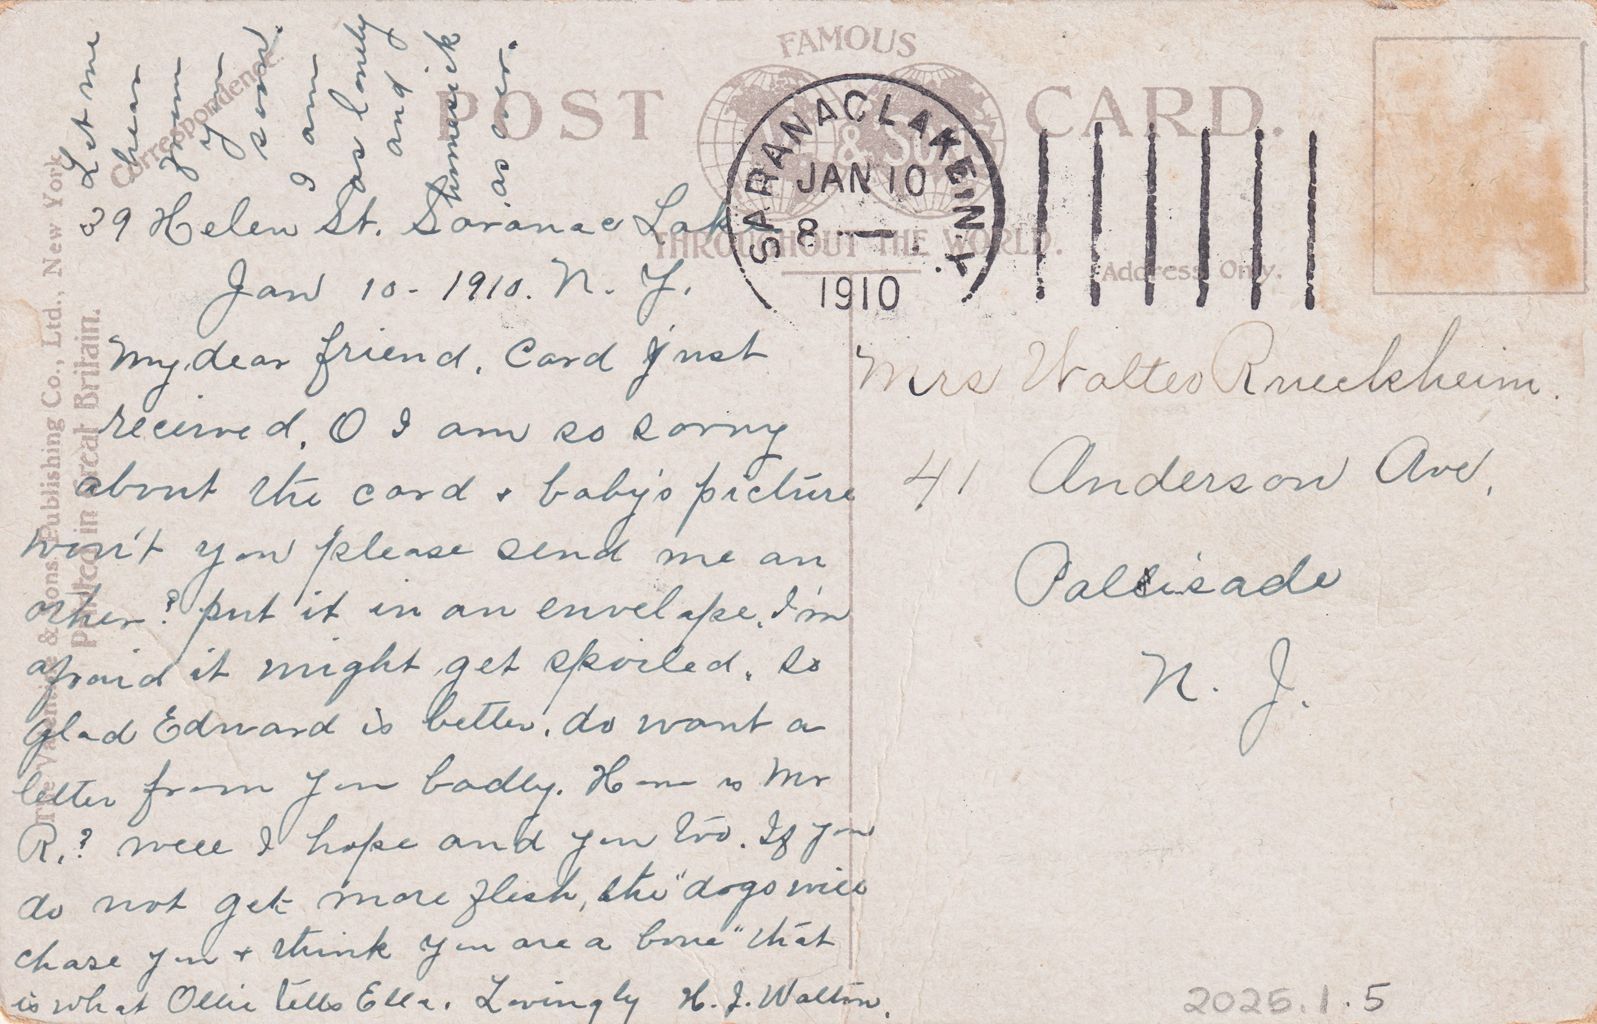 FAMOUS
POST CARD.
& Sons
THROUGHOUT THE WORLD.
Correspondence.
Address Only.
SARANAC LAKE, N.Y.
JAN 10
8 —
1910
The Valentine & Sons Publishing Co., Ltd., New York
Printed in Great Britain.
39 Helen St. Saranac Lake
Jan 10 - 1910. N. Y.
My dear friend. Card just
received. O I am so sorry
about the card + baby's picture
won't you please send me an
other? put it in an envelope. I'm
afraid it might get spoiled. So
glad Edward is better. do want a
letter from you badly. How is Mr
R.? well I hope and you too. If you
do not get more flesh, the "dogs will
chase you + think you are a bone" that
is what Ollie tells Ella. Lovingly H. J. Walton.
Let me
hear
from
you
soon.
I am
as lonely
and
homesick
as ever.
Mrs Walter Rueckheim.
41 Anderson Ave,
Palisade
N. J.
2025.1.5